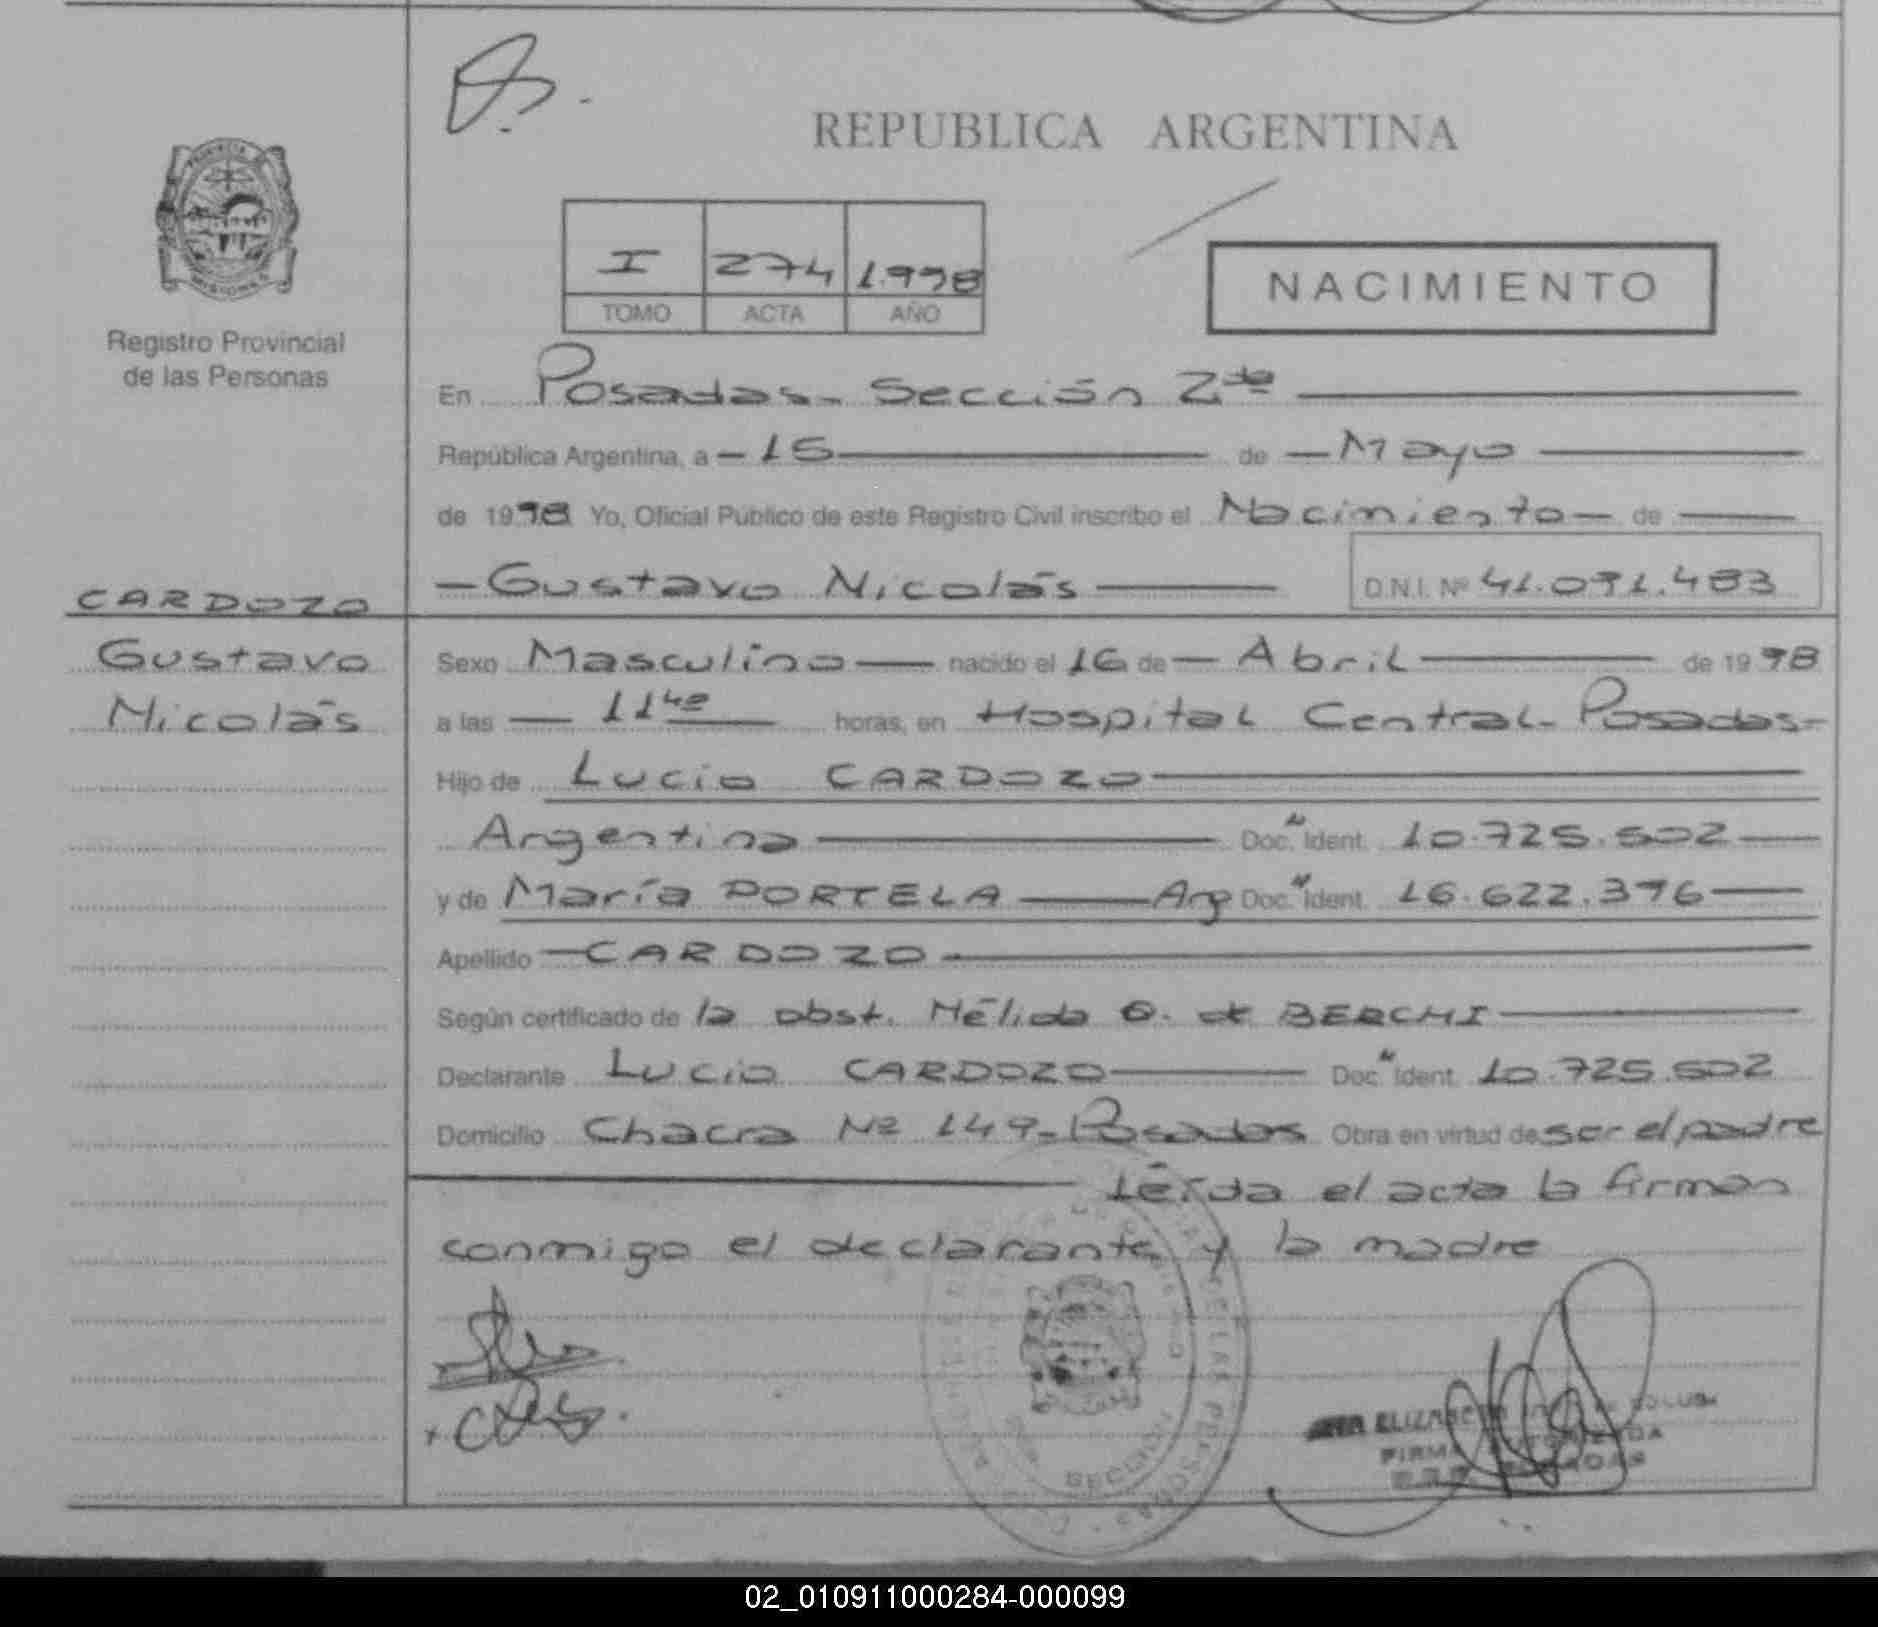 REPUBLICA ARGENTINA
I 274 1.998
TOMO ACTA AÑO
NACIMIENTO
Registro Provincial
de las Personas
En Posadas - Sección 2da
República Argentina, a 15 de Mayo
de 1998 Yo, Oficial Público de este Registro Civil inscribo el Nacimiento de
Gustavo Nicolás D.N.I. Nº 41.091.483
CARDOZO
Gustavo
Nicolás
Sexo Masculino nacido el 16 de Abril de 1998
a las 11 horas, en Hospital Central - Posadas -
Hijo de Lucio CARDOZO
Argentina Doc. Ident. 10.725.502
y de María PORTELA Arg Doc. Ident. 16.622.376
Apellido CARDOZO
Según certificado de la obst. Nélida G. de BERCHI
Declarante Lucio CARDOZO Doc. Ident. 10.725.502
Domicilio Chacra Nº 149 - Posadas Obra en virtud de ser el padre
Leída el acta la firman
conmigo el declarante y la madre
FIRMA AUTORIZADA
02_010911000284-000099